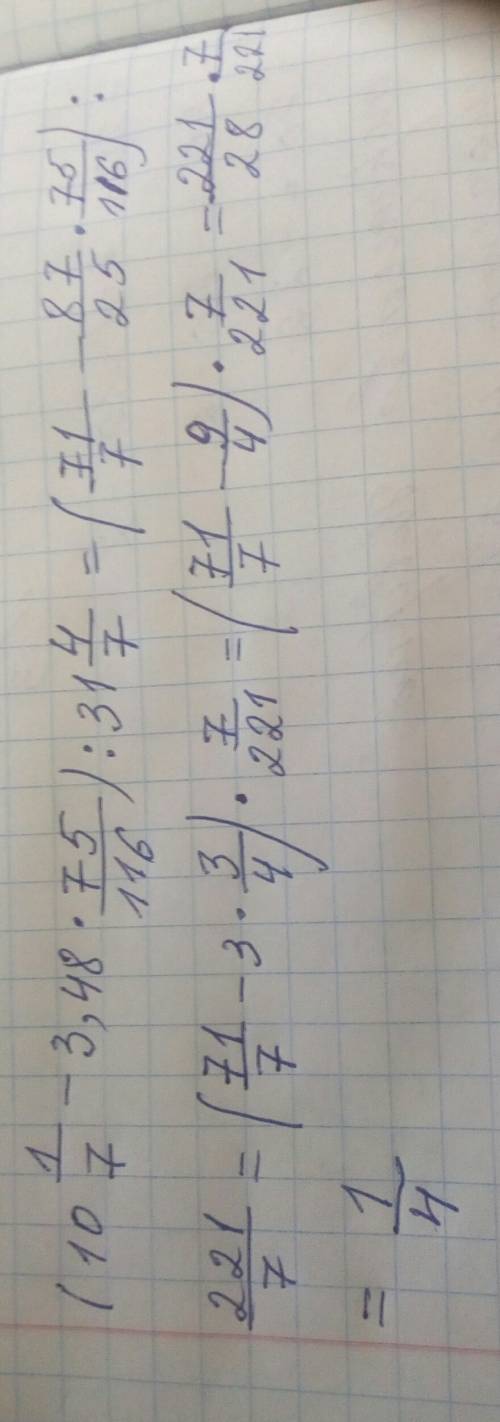 (10 1/7 - 3,48 · 75/116) : 31 4/7 = (71/7 - 87/25 · 75/116) :
221/7 = (71/7 - 3 · 3/4) · 7/221 = (71/7 - 9/4) · 7/221 = 221/28 · 7/221
= 1/4